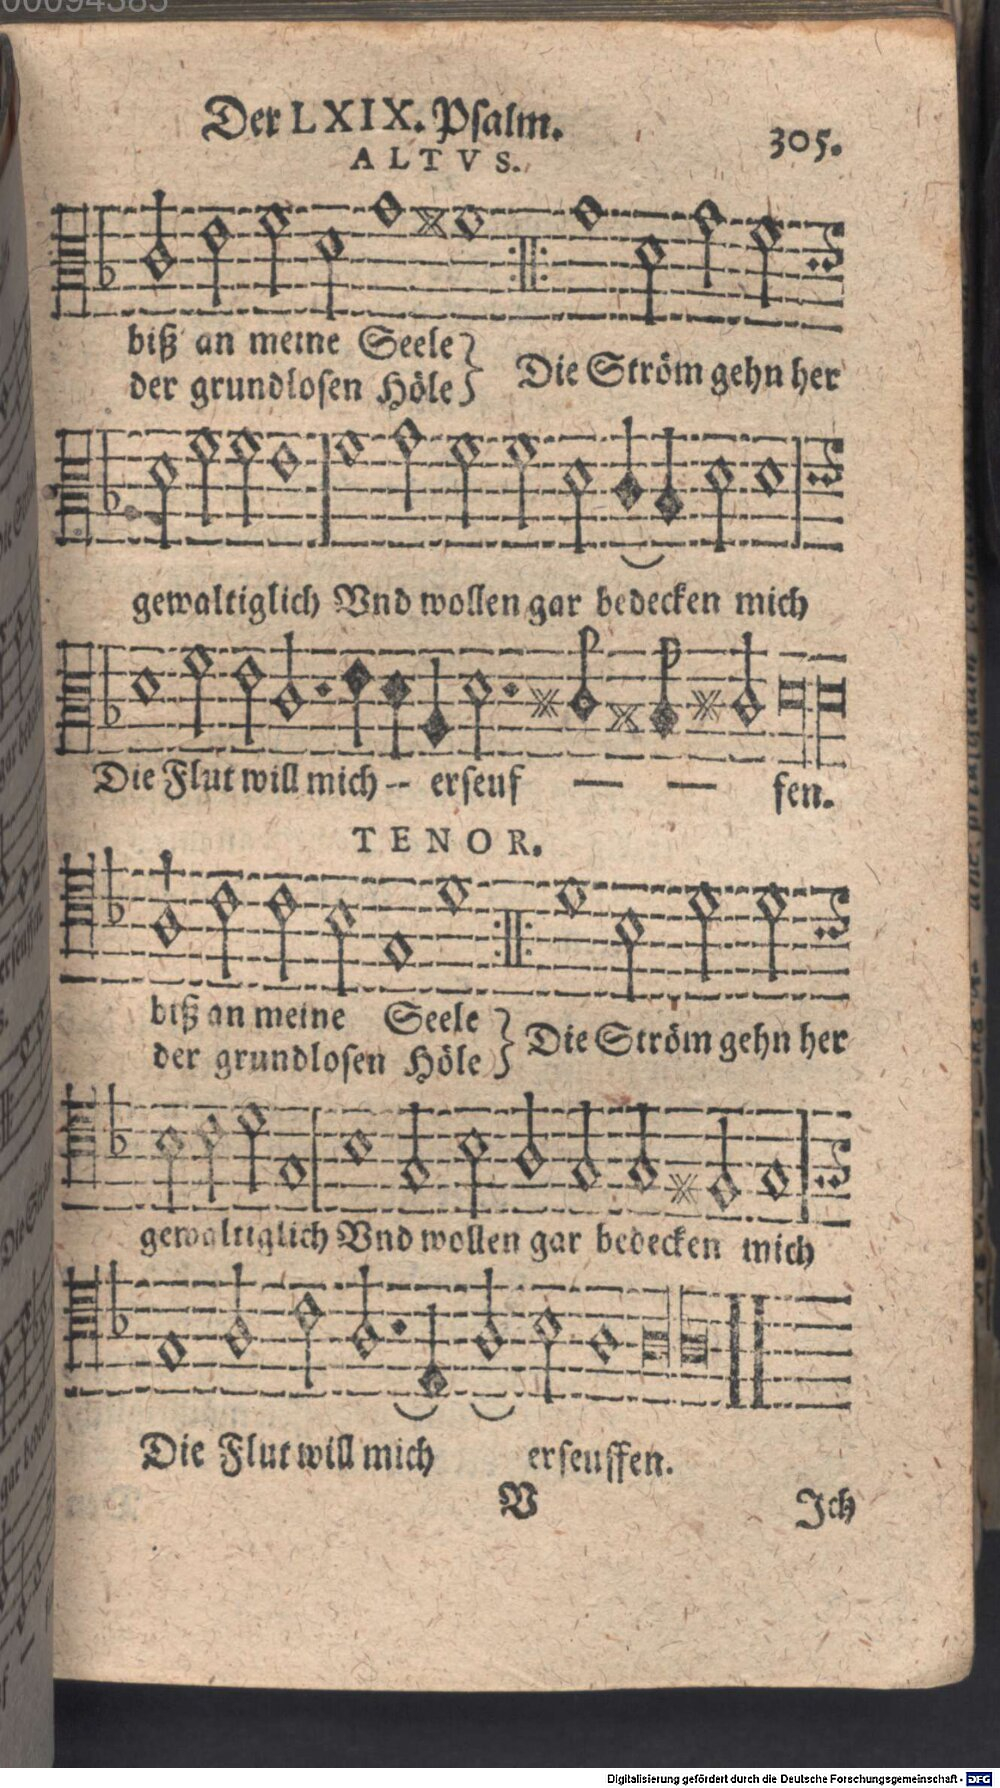 00094385
Der LXIX. Psalm.
305.
ALTVS.
biß an meine Seele
der grundlosen Höle
Die Ström gehn her
gewaltiglich Vnd wollen gar bedecken mich
Die Flut will mich -- erseuf — — fen.
TENOR.
biß an meine Seele
der grundlosen Höle
Die Ström gehn her
gewaltiglich Vnd wollen gar bedecken mich
Die Flut will mich erseuffen.
V
Ich
Digitalisierung gefördert durch die Deutsche Forschungsgemeinschaft - DFG